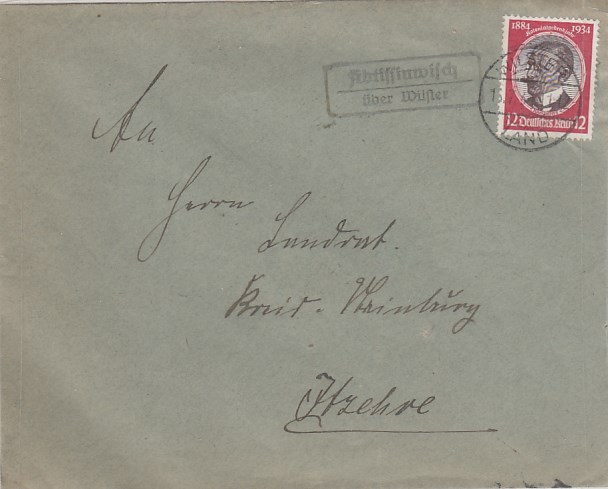 1884 1934
Kolonialgedenkjahr
12 Deutsches Reich 12
LAND
Äbtissinwisch
über Wilster
An
Herrn
Landrat.
Kreis-Steinburg
Itzehoe